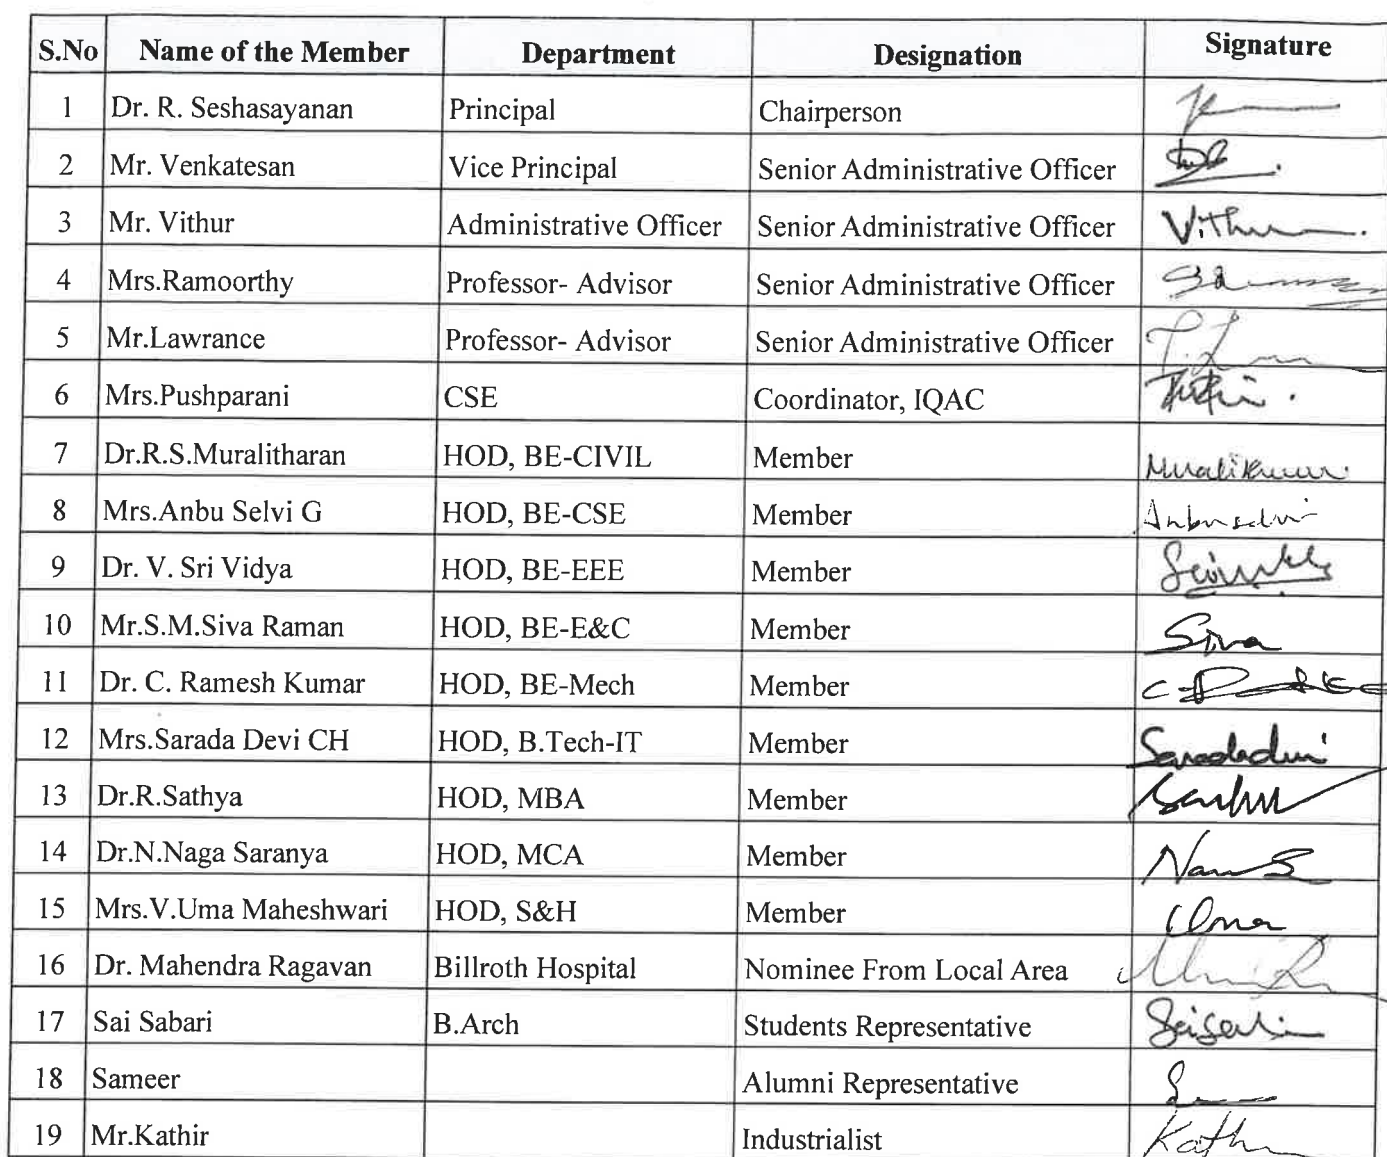 S.No Name of the Member Department Designation Signature
1 Dr. R. Seshasayanan Principal Chairperson
2 Mr. Venkatesan Vice Principal Senior Administrative Officer
3 Mr. Vithur Administrative Officer Senior Administrative Officer Vithur
4 Mrs.Ramoorthy Professor- Advisor Senior Administrative Officer
5 Mr.Lawrance Professor- Advisor Senior Administrative Officer
6 Mrs.Pushparani CSE Coordinator, IQAC
7 Dr.R.S.Muralitharan HOD, BE-CIVIL Member
8 Mrs.Anbu Selvi G HOD, BE-CSE Member Anbuselvi
9 Dr. V. Sri Vidya HOD, BE-EEE Member
10 Mr.S.M.Siva Raman HOD, BE-E&C Member Siva
11 Dr. C. Ramesh Kumar HOD, BE-Mech Member
12 Mrs.Sarada Devi CH HOD, B.Tech-IT Member Saradadevi
13 Dr.R.Sathya HOD, MBA Member
14 Dr.N.Naga Saranya HOD, MCA Member
15 Mrs.V.Uma Maheshwari HOD, S&H Member Uma
16 Dr. Mahendra Ragavan Billroth Hospital Nominee From Local Area
17 Sai Sabari B.Arch Students Representative
18 Sameer Alumni Representative
19 Mr.Kathir Industrialist